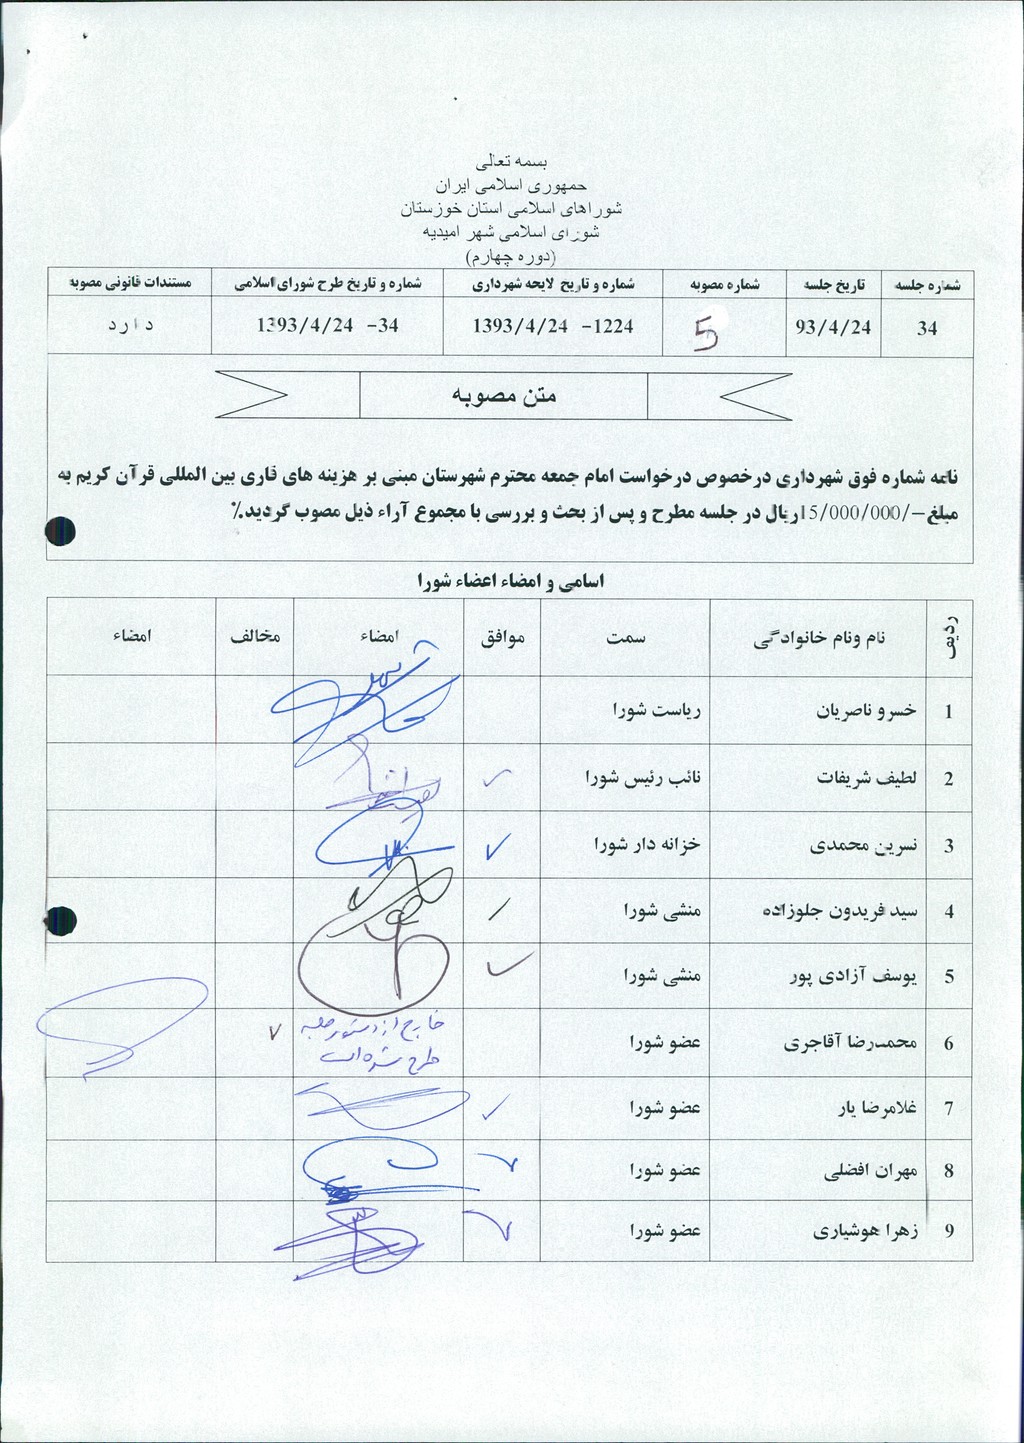 بسمه تعالی
جمهوری اسلامی ایران
شوراهای اسلامی استان خوزستان
شورای اسلامی شهر امیدیه
(دوره چهارم)
شماره جلسه تاریخ جلسه شماره مصوبه شماره و تاریخ لایحه شهرداری شماره و تاریخ طرح شورای اسلامی مستندات قانونی مصوبه
34 93/4/24 5 1224- 1393/4/24 34- 1393/4/24 دارد
متن مصوبه
نامه شماره فوق شهرداری درخصوص درخواست امام جمعه محترم شهرستان مبنی بر هزینه های قاری بین المللی قرآن کریم به
مبلغ-/15/000/000ریال در جلسه مطرح و پس از بحث و بررسی با مجموع آراء ذیل مصوب گردید٪
اسامی و امضاء اعضاء شورا
ردیف نام ونام خانوادگی سمت موافق امضاء مخالف امضاء
1 خسرو ناصریان ریاست شورا
2 لطیف شریفات نائب رئیس شورا ✓
3 نسرین محمدی خزانه دار شورا ✓
4 سید فریدون جلوزاده منشی شورا
5 یوسف آزادی پور منشی شورا ✓
6 محمدرضا آقاجری عضو شورا خارج از دستور جلسه ✓
طرح شده است
7 غلامرضا یار عضو شورا ✓
8 مهران افضلی عضو شورا ✓
9 زهرا هوشیاری عضو شورا ✓